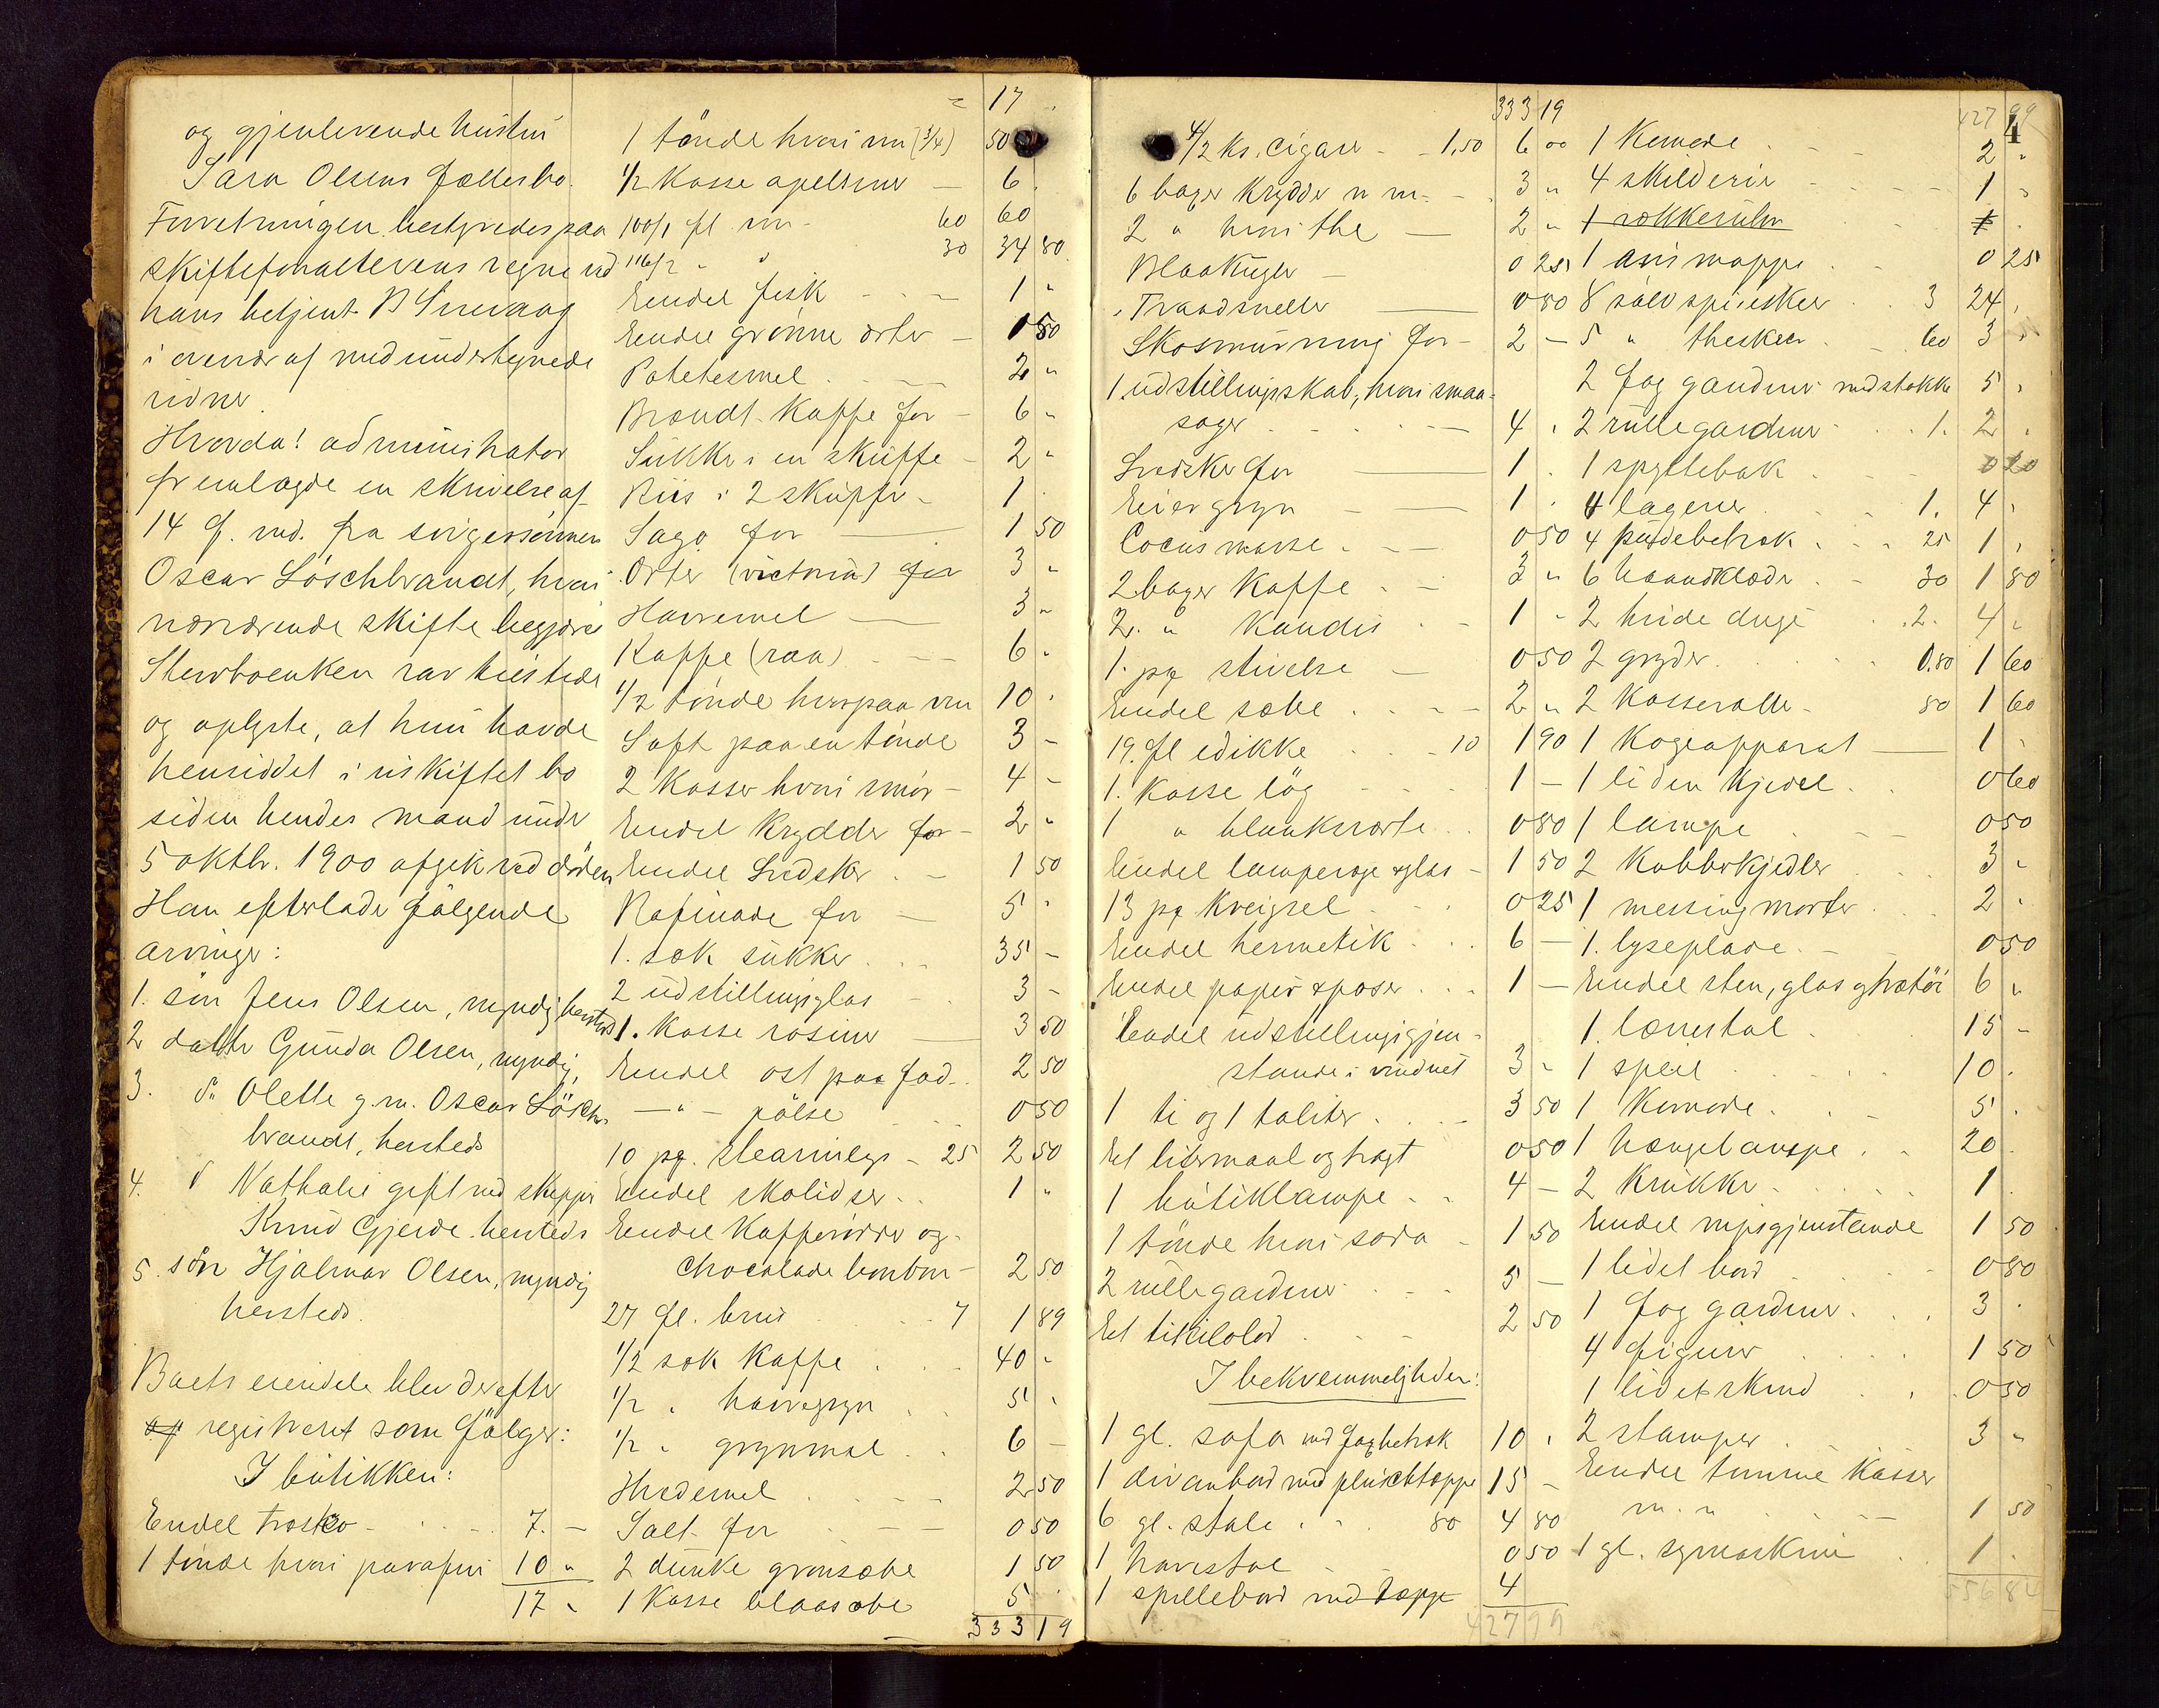 og gjenlevende hustru
Sara Olsens fællesbo.
Forretningen bestyredes paa
skifteforvalterens vegne ved
hans betjent B Sirevaag
i overvær af medundertegnede
vidner.
Hvorda! administrator
fremlagde en skrivelse af
14 f. md. fra svigersønnen
Oscar Löschbrandt, hvori
nærværende skifte begjæres
Sterboenken var tilstede
og oplyste, at hun havde
hensiddet i uskiftet bo
siden hendes mand under
5 oktbr. 1900 afgik ved døden
Han efterlod følgende
arvinger:
1. søn Jens Olsen, myndig, hersteds
2 datter Gunda Olsen, myndig,
3. do Olette g.m. Oscar Lösch-
brandt, hersteds
4. d Nathalie gift med skipper
Knud Gjerde hersteds
5. søn Hjalmar Olsen, myndig
hersteds.
Boets eiendele blev derefter
registreret som følger:
I butikken:
Endel træsko - 7. -
1 tønde hvori parafin 10 "
17 "
= 17 .
1 tønde hvori vin (3/4) 50
1/2 kasse apelsiner - 6 .
100/1 fl vin - 60 60
116/2 " " 30 34 80
Endel fisk - - - 1 "
Endel grønne erter - 1 50
Potetesmel - - 2 "
Brændt kaffe for - 6 "
Sukker i en skuffe - 2 "
Riis i 2 skuffer - 1 .
Sago for - 1 50
Erter (victoria) for 3 "
Havremel - 3 "
Kaffe (raa) - - - 6 .
1/2 tønde hvorpaa vin 10 .
Saft paa en tønde 3 -
2 kasser hvori smør - 4 -
Endel krydder for - 2 "
Endel Sedsker . - 1 50
Rafinade for - 5 .
1. sæk sukker . . 35 -
2 udstillingsglas - 3 -
1. kasse rosiner - 3 50
Endel ost paa fad . . 2 50
- " - pølse . . . 0 50
10 pg. stearinlys - 25 2 50
Endel skolidser . . 1 "
Endel kaffe og -
chocolade bonbon - 2 50
27 fl. brus . . . 7 1 89
1/2 sæk kaffe . . . 40 .
1/2 " havregryn . . 5 .
1/2 " grynmel . . 6 -
Hvedemel . . . 2 50
Salt for - - 0 50
2 dunke grønsæbe 1 50
1 kasse blaasæbe 5 .
333 19
333 19
4/2 ks. cigarer - - 1.50 6 00
6 bøger krydder m m. - 3 "
2 " hvori the - 2 "
Blaakugler - 0 25
Traadsneller - 0 80
Skosmurning for - 2 -
1 udstillingskab, hvori smaa-
sager . . . - 4 .
Sedsker for - 1 .
Eiergryn - - 1 .
Cocusmasse . - - 0 50
2 bøger kaffe . - 3 "
2. " kandis . - 1 "
1. pg stivelse - 0 50
Endel sæbe . . - - 2 "
19. fl edikke . . - 10 1 90
1. kasse løg - - - 1 -
1 " blanksværte . . 0 80
Endel lampeveger & glas - 1 50
13 pg. kveigsel . . . 0 25
Endel hermetik . . . 6 -
Endel papir & poser . . . 1 -
Endel udstillingsgjen-
stande i vinduet 3 "
1 ti og 1 taliter . . - - 3 50
Et litermaal og tragt 0 50
1 butiklampe . . 4 -
1 tønde hvori soda - 1 50
2 rullegardiner . - - 3 -
Et . . - 2 50
I bekvemmeligheden:
1 gl. sofa med fagbetræk 10 .
1 divanbord med plüschtæppe 15 -
6 gl. stole . . . 80 4 80
1 havestol 0 50
1 spillebord med tæppe 4
427 99
427 99
4
1 Komode . - - 2 "
4 skilderier - - - - 1 "
1 1 .
1 avismappe . . 0 25
8 sølv spiseskeer . . 3 24 .
5 " theskeer . - 60 3 .
2 fag gardiner med stokke 5 .
2 rullegardiner . . . 1. 2 .
1 spyttebak . . - 0 20
4 lagener . . - 1. 4 .
4 pudebetræk . . . 25 1 .
6 haandklæder . - 30 1 80
2 hvide duge . . 2. 4 "
2 gryder . . . . 0.80 1 60
2 kasseroller - 80 1 60
1 Kogeapparat - 1 .
1 liden kjedel . . 0 60
1 lampe . - - 0 50
2 Kobberkjedler . . . 3 "
1 messingmorter . . . 2 "
1. lyseplade . - - 0 50
Endel sten, glas og trætøi 6 "
1. lænestol . . 15 -
1 speil . . . . . 10 .
1 Komode . . . - 5 .
1 hængelampe . . 20 .
2 krukker . . . . . 1 .
Endel nipsgjenstande 1 50
1 lidet bord . . . . 0 80
1 fag gardiner . . . 3 .
4 figurer . . . . 1 50
1 lidet skind . . . 0 50
2 stamper . - - - 3 "
Endel tomme kasser
m. m . . - - 1 50
1 gl. symaskine . . 1 .
556 84